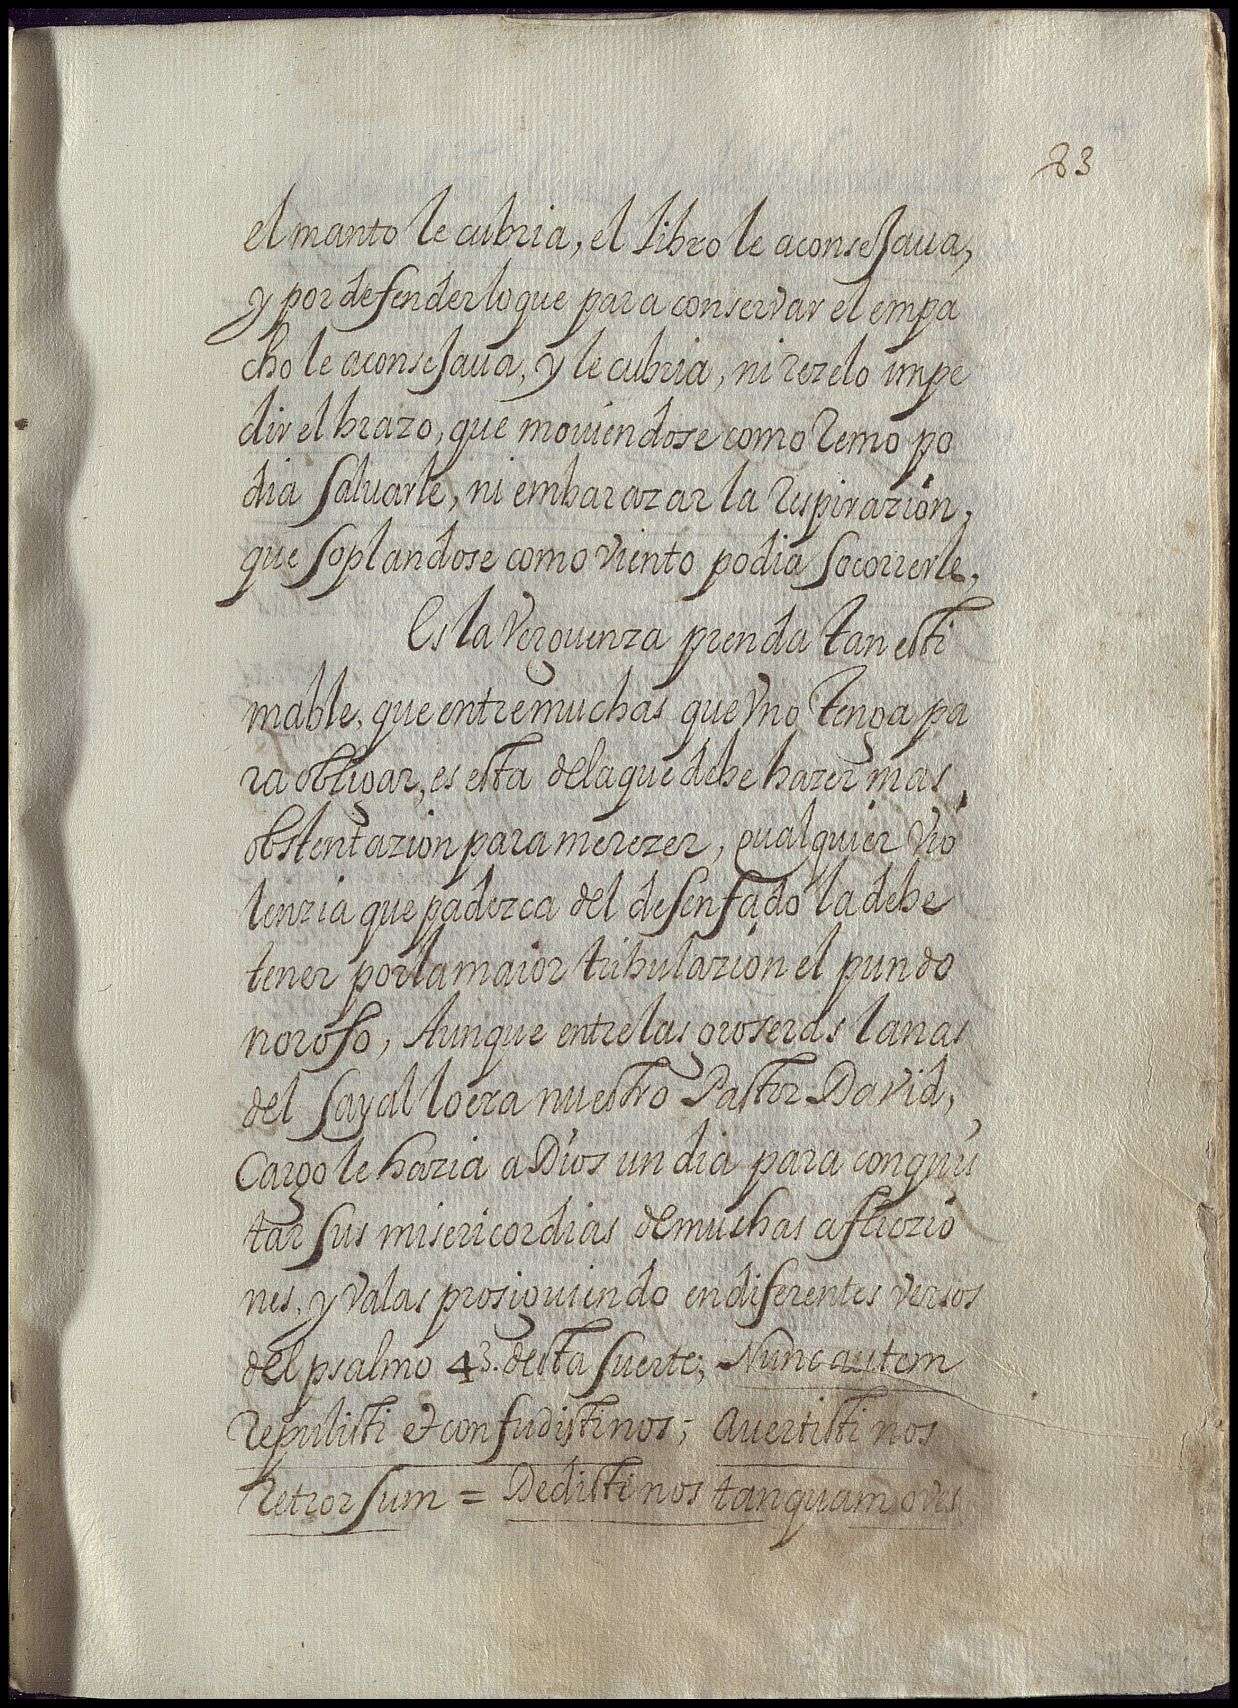 83
el manto le cubria, el libro le aconseJaua,
y por defender lo que para conservar el empa
cho le aconseJaua, y le cubria, ni rezelo impe
dir el brazo, que mouiendose como remo po
dia saluarle, ni embarazar la respirazion,
que soplandose como viento podia socorrerle.
Es la Verguenza prenda tan esti
mable, que entre muchas que Vno tenga pa
ra obligar, es esta de la que debe hazer mas
obstentazion para merezer, qualquier vio
lenzia que padezca del desenfado la debe
tener por la maior tribulazion el pundo
noroso, Aunque entre las groseras lanas
del sayal lo era nuestro Pastor David,
Cargo le hazia a Dios un dia para conquis
tar sus misericordias de muchas afliczio
nes, y valas prosiguiendo en diferentes versos
del psalmo 43. desta suerte; Nunc autem
repulisti et confudisti nos; Avertisti nos
retrorsum = Dedisti nos tanquam oves